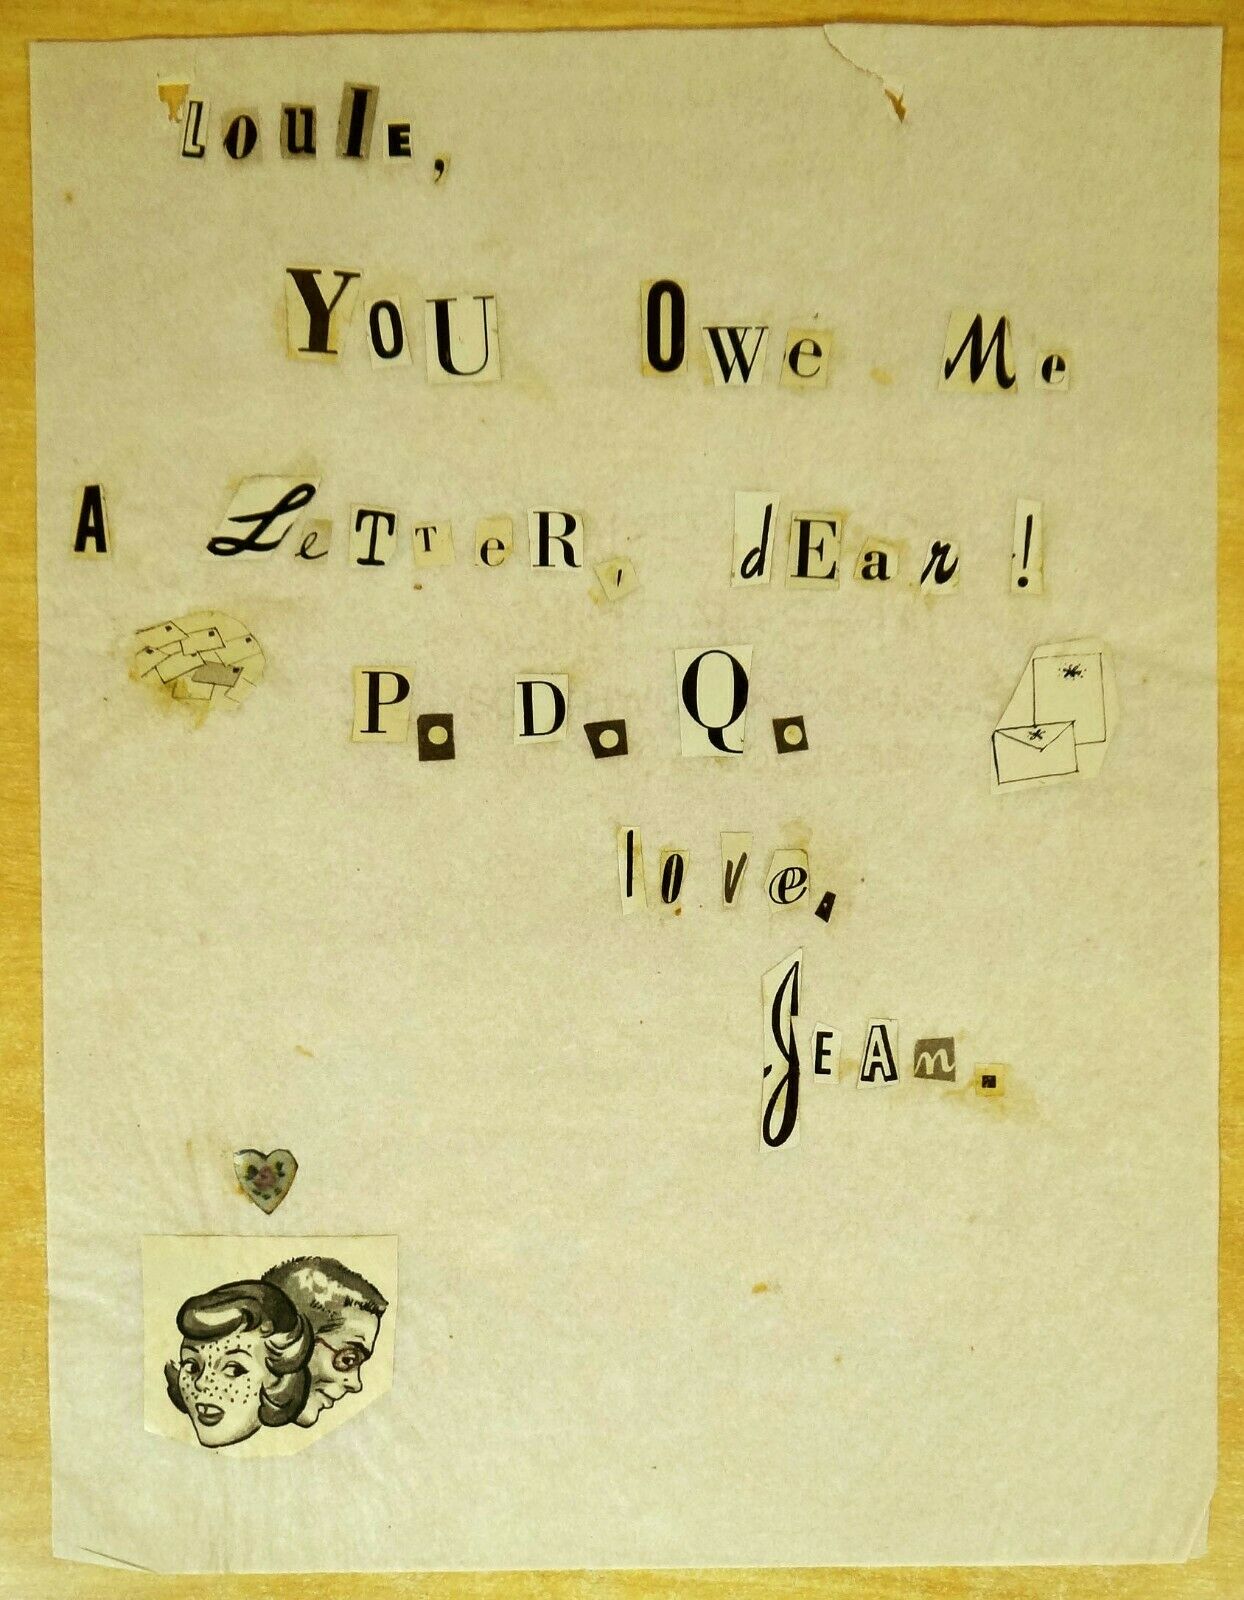 LouIE,
YoU Owe Me
A LeTTeR, dEar!
P. D. Q.
love,
JEAn.